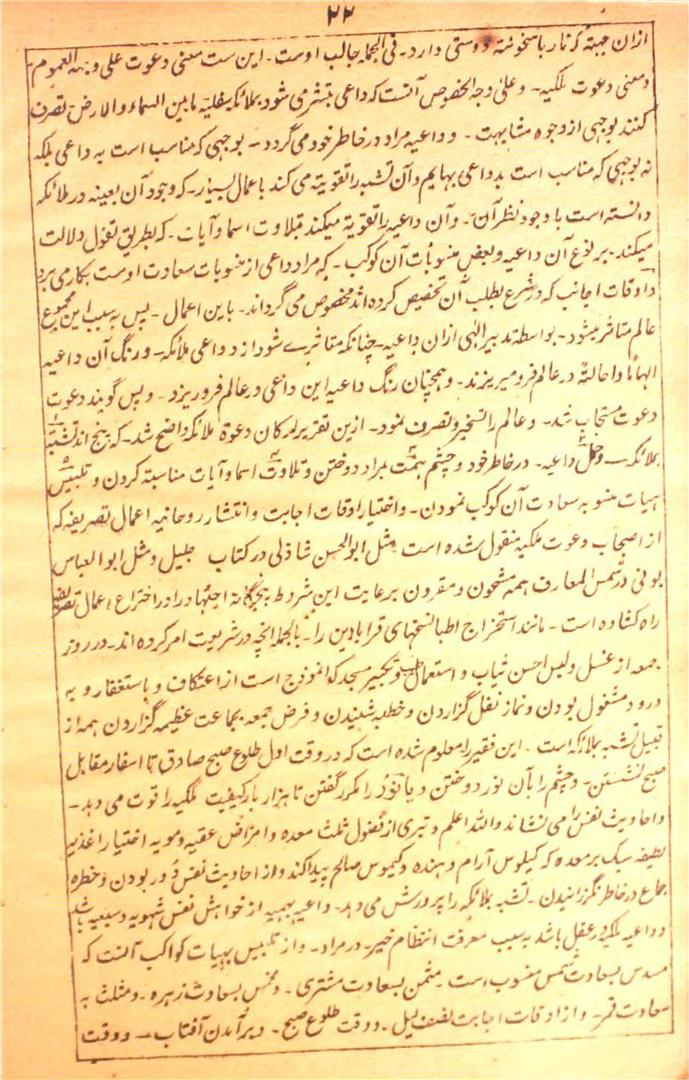 ۲۲
ازان جهته که نار با سوخته دوستی دارد۔ فی الجمله جالب اوست۔ این ست معنی دعوت علی وجه العموم۔
و معنی دعوت ملکیه۔ و علی وجه الخصوص آنست که داعی متبشر می شود بملائکه سفلیه ما بین السماء والارض تصرف
کنند بوجهی از وجوه مشابهت۔ و داعیه مراد در خاطر خود می گردد۔ بوجهی که مناسب است به داعی ملکه
نه بوجهی که مناسب است بداعی بهایم و آن تشبه را تقویته می کند باعمال بسیار۔ که وجود آن بعینه در ملائکه
دانسته است یا وجود نظر آن۔ و آن داعیه را تقویة میکند بتلاوت اسما و آیات۔ که بطریق تفول دلالت
میکند۔ بر نوع آن داعیه و بعض منسوبات آن کوکب۔ که مراد داعی از منسوبات سعادت اوست بکار می برد
و اوقات اجابت که در شرع بطلب آن تخصیص کرده اند مخصوص می گرداند۔ باین اعمال۔ پس به سبب این مجموع
عالم متاثر میشود۔ بواسطه تدبیر الهی ازان داعیه۔ چنانکه متاثر می شود از دواعی ملائکه۔ و رنگ آن داعیه
الهاما و احالة در عالم فرو میریزند۔ و همچنان رنگ داعیه این داعی در عالم فرو ریزد۔ و پس گویند دعوت
دعوت مستجاب شد۔ و عالم را تسخیر و تصرف نمود۔ ازین تقریر ارکان دعوة ملائکه واضح شد۔ که پنج اند تشبه
بملائکه۔ و داعیه۔ در خاطر خود و چشم همت بمراد دوختن و تلاوت اسما و آیات مناسبته کردن و تلبیس
هیات منسوبه سعادت آن کوکب نمودن۔ و اختیار اوقات اجابت و انتشار روحانیه اعمال تصریفه که
از اصحاب دعوت ملکیه منقول شده است مثل ابو الحسن شاذلی در کتاب جلیل و مثل ابو العباس
بونی در شمس المعارف همه مشحون و مقرون برعایت این شروط پنجگانه اجتهاد را در اختراع اعمال تصریفه
راه کشاده است۔ مانند استخراج اطبا نسخهای قرابادین را۔ بالجمله آنچه در شریعت امر کرده اند۔ در روز
جمعه از غسل و لبس احسن ثیاب و استعمال طیب و تجمیر مسجد که انموذج است از اعتکاف و باستغفار و به
درود مشغول بودن و نماز نفل گزاردن و خطبه شنیدن و فرض جمعه بجماعت عظیمه گزاردن همه از
قبیل تشبه بملائکه است۔ این فقیر را معلوم شده است که در وقت اول طلوع صبح صادق تا اسفار مقابل
صبح نشستن۔ و چشم را بآن نور دوختن و یا نور را مکرر گفتن تا هزار بار کیفیت ملکیه را قوت می دهد۔
و احادیث نفس را می نشاند والله اعلم و تبری از فضول ثلث معده و امراض عقیه و مویه اختیار اغذیه
لطیفه سبک بر معده که کیلوس آرام دهنده و کیموس صالح پیدا کند و از احادیث نفس دور بودن و خطره
جماع در خاطر نگزرانیدن۔ تشبه بملائکه را پرورش می دهد۔ و داعیه بهیمیه از خواهش نفس شهویه و سبعیه باشد
و داعیه ملکیه در عقل باشد به سبب معرفت انتظام خیر۔ در مراد۔ و از تلبیس بهیات کواکب آنست که
مسدس بسعادت شمس منسوب است۔ مثمن بسعادت مشتری۔ و مخمس بسعادت زهره۔ و مثلث به
سعادت قمر۔ و از اوقات اجابت نصف لیل۔ و وقت طلوع صبح۔ و برآمدن آفتاب۔ و وقت